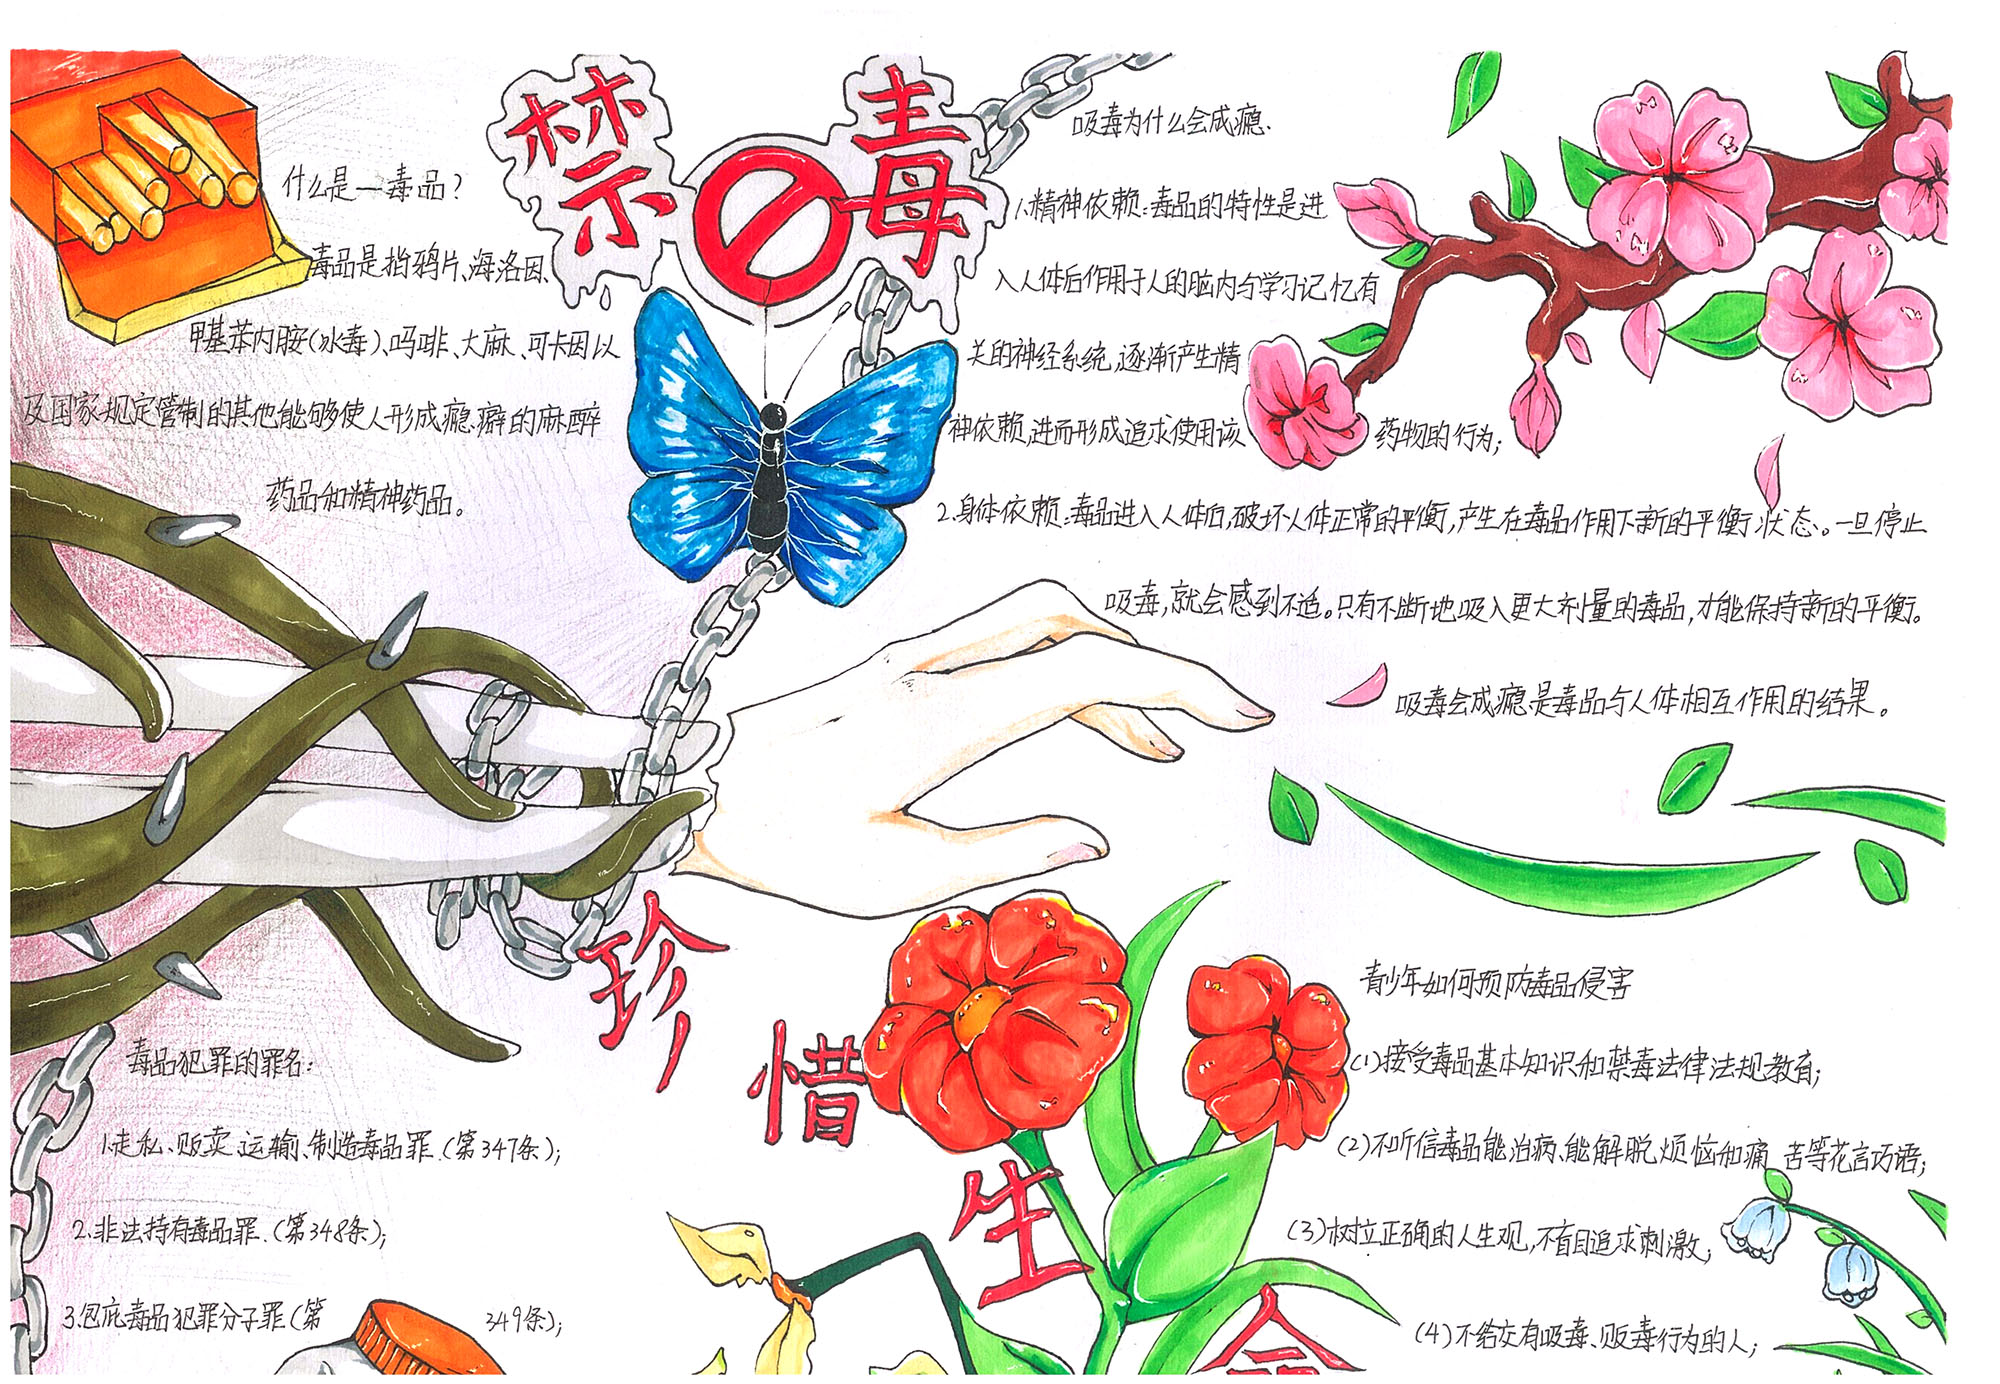 禁毒
什么是一毒品?
毒品是指鸦片、海洛因、
甲基苯丙胺(冰毒)、吗啡、大麻、可卡因以
及国家规定管制的其他能够使人形成瘾癖的麻醉
药品和精神药品。
吸毒为什么会成瘾.
1.精神依赖:毒品的特性是进
入人体后作用于人的脑内与学习记忆有
关的神经系统,逐渐产生精
神依赖,进而形成追求使用该 药物的行为;
2.身体依赖:毒品进入人体后,破坏人体正常的平衡,产生在毒品作用下新的平衡状态。一旦停止
吸毒,就会感到不适。只有不断地吸入更大剂量的毒品,才能保持新的平衡。
吸毒会成瘾是毒品与人体相互作用的结果。
珍
惜
生
毒品犯罪的罪名:
1.走私、贩卖、运输、制造毒品罪.(第347条);
2.非法持有毒品罪.(第348条);
3.包庇毒品犯罪分子罪(第 349条);
青少年如何预防毒品侵害
(1)接受毒品基本知识和禁毒法律法规教育;
(2)不听信毒品能治病、能解脱烦恼和痛苦等花言巧语;
(3)树立正确的人生观,不盲目追求刺激;
(4)不结交有吸毒、贩毒行为的人;